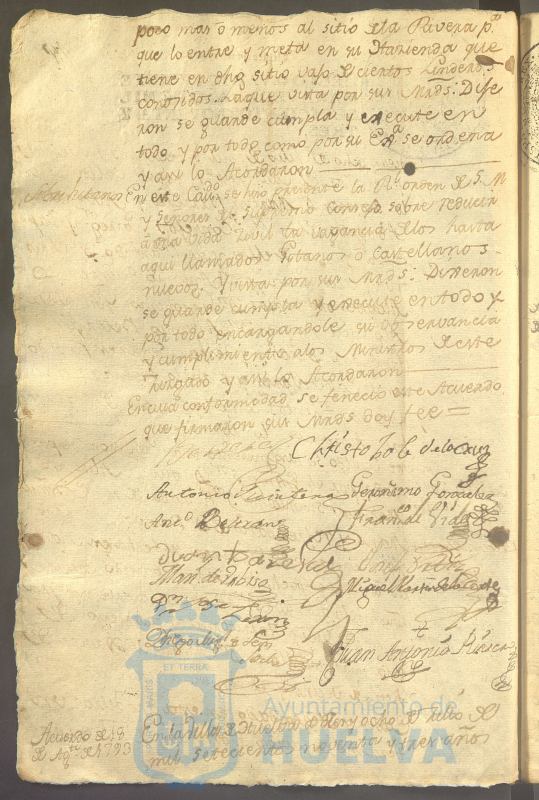 poco mas ó menos al sitio de la Rivera pa
que lo entre y meta en su Hazienda que
tiene en dho sitio vajo de ciertos linderos
conozidos. La que vista por sus Mrds: Dije
ron se guarde cumpla y execute en
todo y por todo como por su Exa se ordena
y assi lo Acordaron
Sobre Jitanos En este Cavdo se hizo presente la Rl orden de S. M.
y Señores de Supremo Consejo sobre reducir
a una vida civil la vagancia de los hasta
aqui llamados Gitanos ó Castellanos
nuevos. Y vista por sus Mrds: Dixeron
se guarde cumpla y execute en todo y
por todo encargandole su observancia
y cumplimiento a los Ministros de este
Juzgado y assi lo Acordaron
En cuia conformidad se fenecio este Acuerdo
que firmaron sus Mrds doy fee =
Christobal de la Cruz
Antonio Quintero Geronimo Gonzalez
Anto Beltran Franco de Vides
Juan
Man. de
Miguel Martin de la Corte
Diego
Juan Antonio
ET TERRA
Ayuntamiento de
HUELVA
Acuerdo de 18
de Agto de 1793
En la Villa de Huelva a diez y ocho de
mil setecientos noventa y tres años